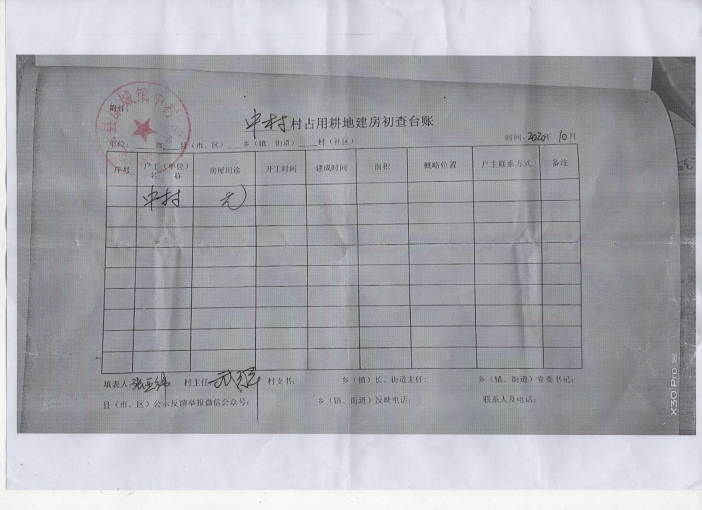 中村村占用耕地建房初查台账
单位: 省 县(市、区) 乡(镇、街道) 村(社区) 时间: 2020年 10月
序号 户主(单位)名 称 房屋用途 开工时间 建成时间 面积 概略位置 户主联系方式 备注
中村
填表人: 村主任: 村支书: 乡(镇)长、街道主任: 乡(镇、街道)党委书记:
县(市、区)公示反馈举报微信公众号: 乡(镇、街道)反映电话: 联系人及电话:
X30 Pro